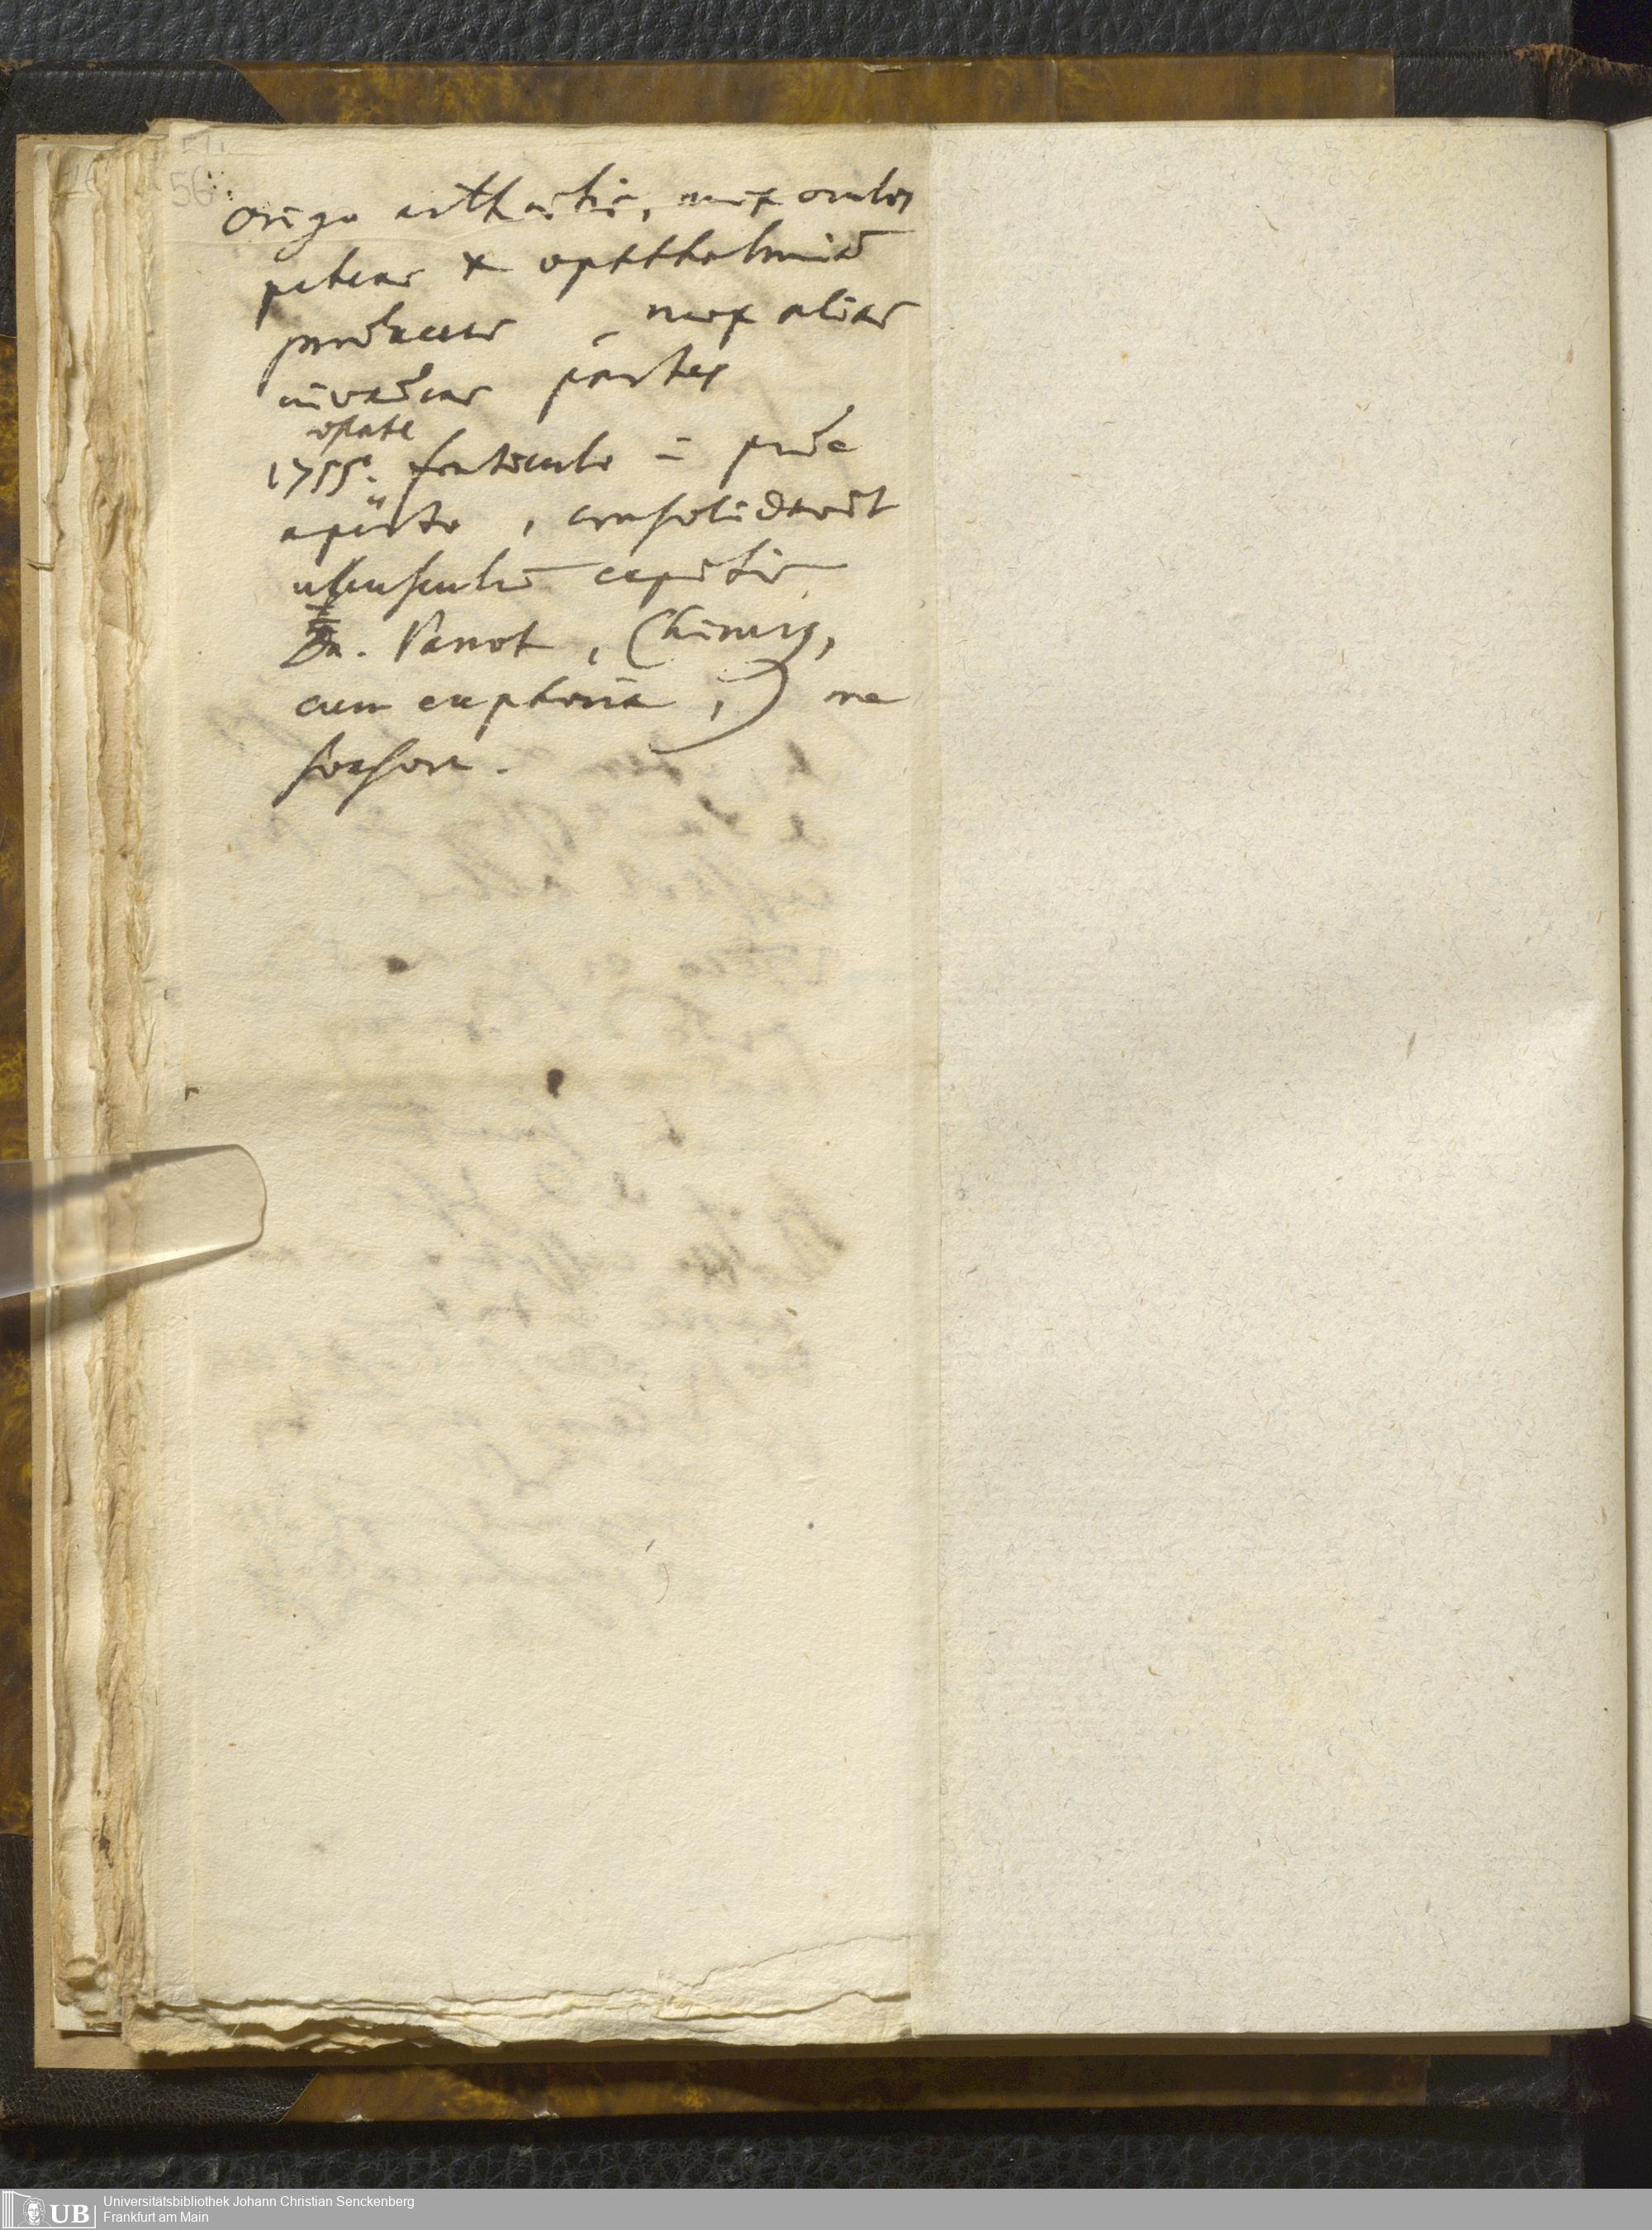 56.
origo arthritis, mox oculos
petens & ophthalmiā
producens, mox alias
invadens partes
æstate
1755. fonticulo in pede
aperto, consolidavit
ulcusculū capitis
Dn. Parrot, Chirurg,
cum euphoria,) me
suasore.
UB Universitätsbibliothek Johann Christian Senckenberg
Frankfurt am Main